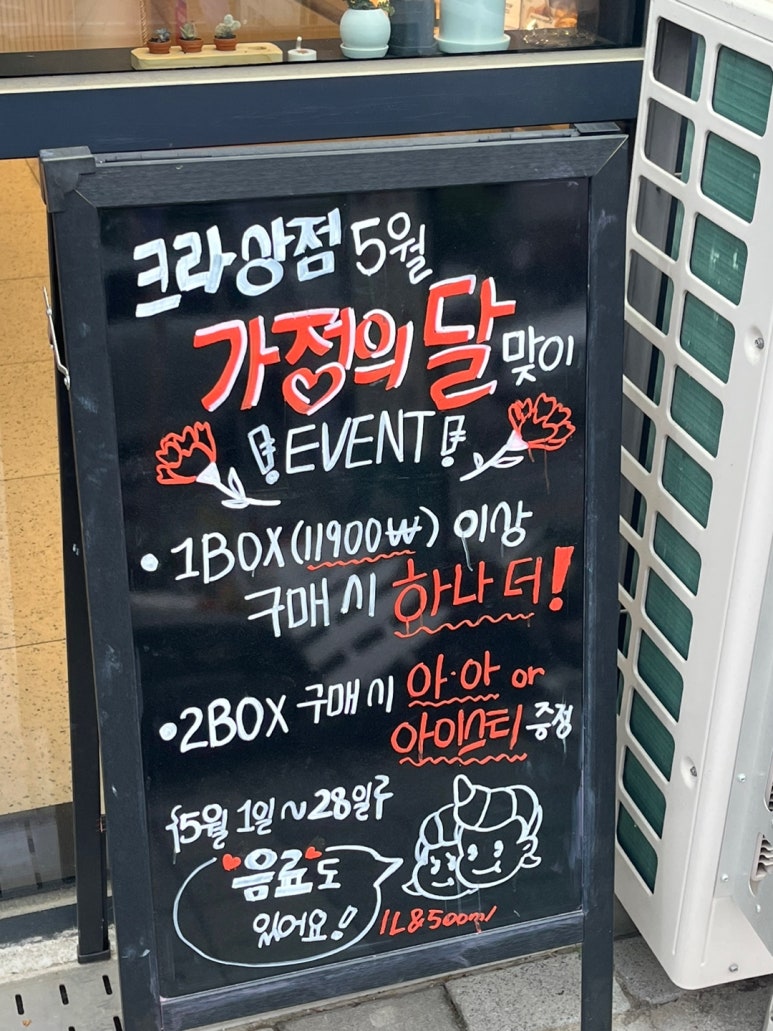 크라상점 5월
가정의 달 맞이
!EVENT!
• 1BOX(11900₩) 이상
구매 시 하나 더!
•2BOX 구매 시 아·아 or
아이스티 증정
{5월 1일 ~ 28일}
음료도
있어요!
1L&500ml